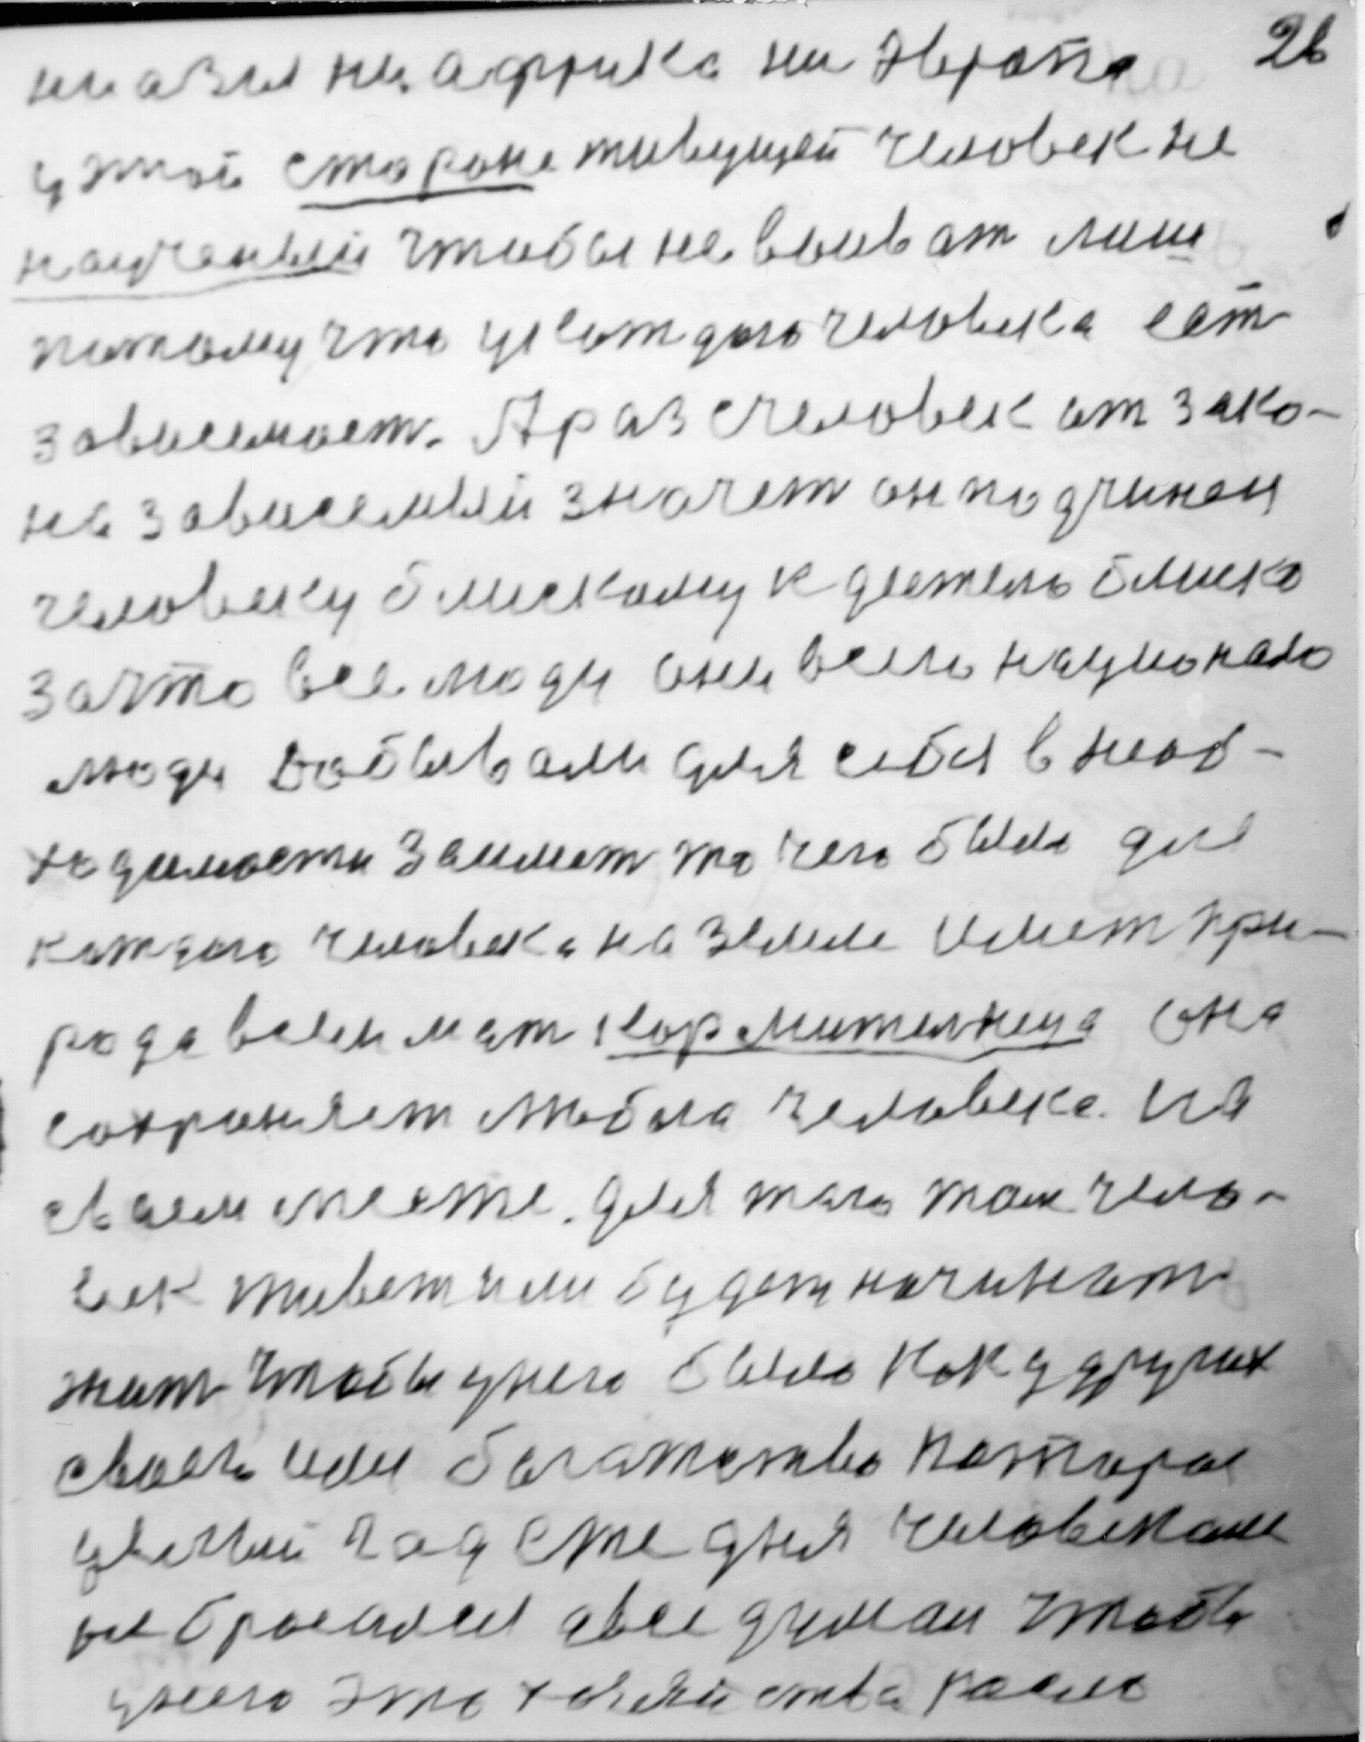 26
ни азия ни африка ни Эвропа
у этой стороне живущей человек не
научены́й чтобы не воиват лиш
потому что у каждого человека ест
зависемост. А раз человек от зако-
на зависемый значет он подчинен
человеку блискому к детель блиско
зачто все люди они всего национало
люди добывали для себя в необ-
ходимости заимет то чего было для
каждого человека на земле имет при-
рода всем мат кормителница она
сохроняет любога человека на
своем месте. для того там чело-
век живет или будет начинат
жит чтобы у него было как у других
своего или богатество которое
целый год дня человеком
не бросался а все думал чтобы
у него это хозяйства росло